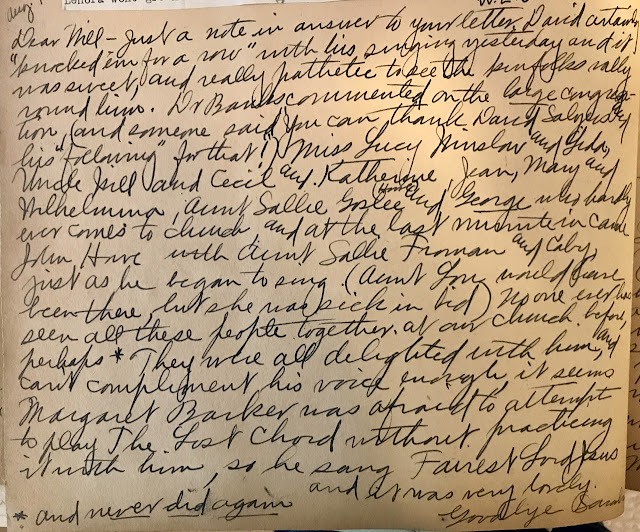 Aug 1
Lenora wont get
Dear Will - Just a note in answer to your letter, David certainly
"knocked 'em for a row" with his singing yesterday and it
was sweet, and really pathetic to see the kinfolks rally
round him. Dr Banks commented on the large congrega-
tion, (and someone said you can thank David and
his "following" for that!) Miss Lucy Winslow and
Uncle Will and Cecil and Katherine, Jean, Mary and
Wilhelmina, Aunt Sallie Goslee (Howe) and George who hardly
ever comes to church, and at the last minute in came
John Howe with Aunt Sallie Froman and Caby,
just as he began to sing. (Aunt Lou would have
been there, but she was sick in bed) No one ever has
seen all these people together at our church before,
perhaps * They were all delighted with him, and
cant compliment his voice enough, it seems
Margaret Barker was afraid to attempt
to play The Lost Chord without practicing
it with him, so he sang Fairest Lord Jesus
and it was very lovely.
* and never did again
Goodbye